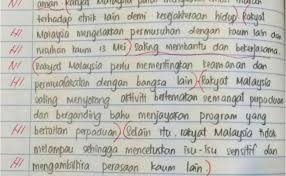 aman. Rakyat Malaysia
N1 terhadap etnik lain demi kesejahteraan hidup. Rakyat
H1 Malaysia mengelakkan permusuhan dengan kaum lain dan
rusuhan kaum 13 Mei. Saling membantu dan bekerjasama.
N1 Rakyat Malaysia perlu mementingkan keamanan dan
H1 permuafakatan dengan bangsa lain. Rakyat Malaysia
saling menyokong aktiviti bertemakan semangat perpaduan
dan berganding bahu menjayakan program yang
H1 bertoitan perpaduan. Selain itu, rakyat Malaysia tidak
melampau sehingga mencetuskan isu-isu sensitif dan
H1 mengambilkira perasaan kaum lain.